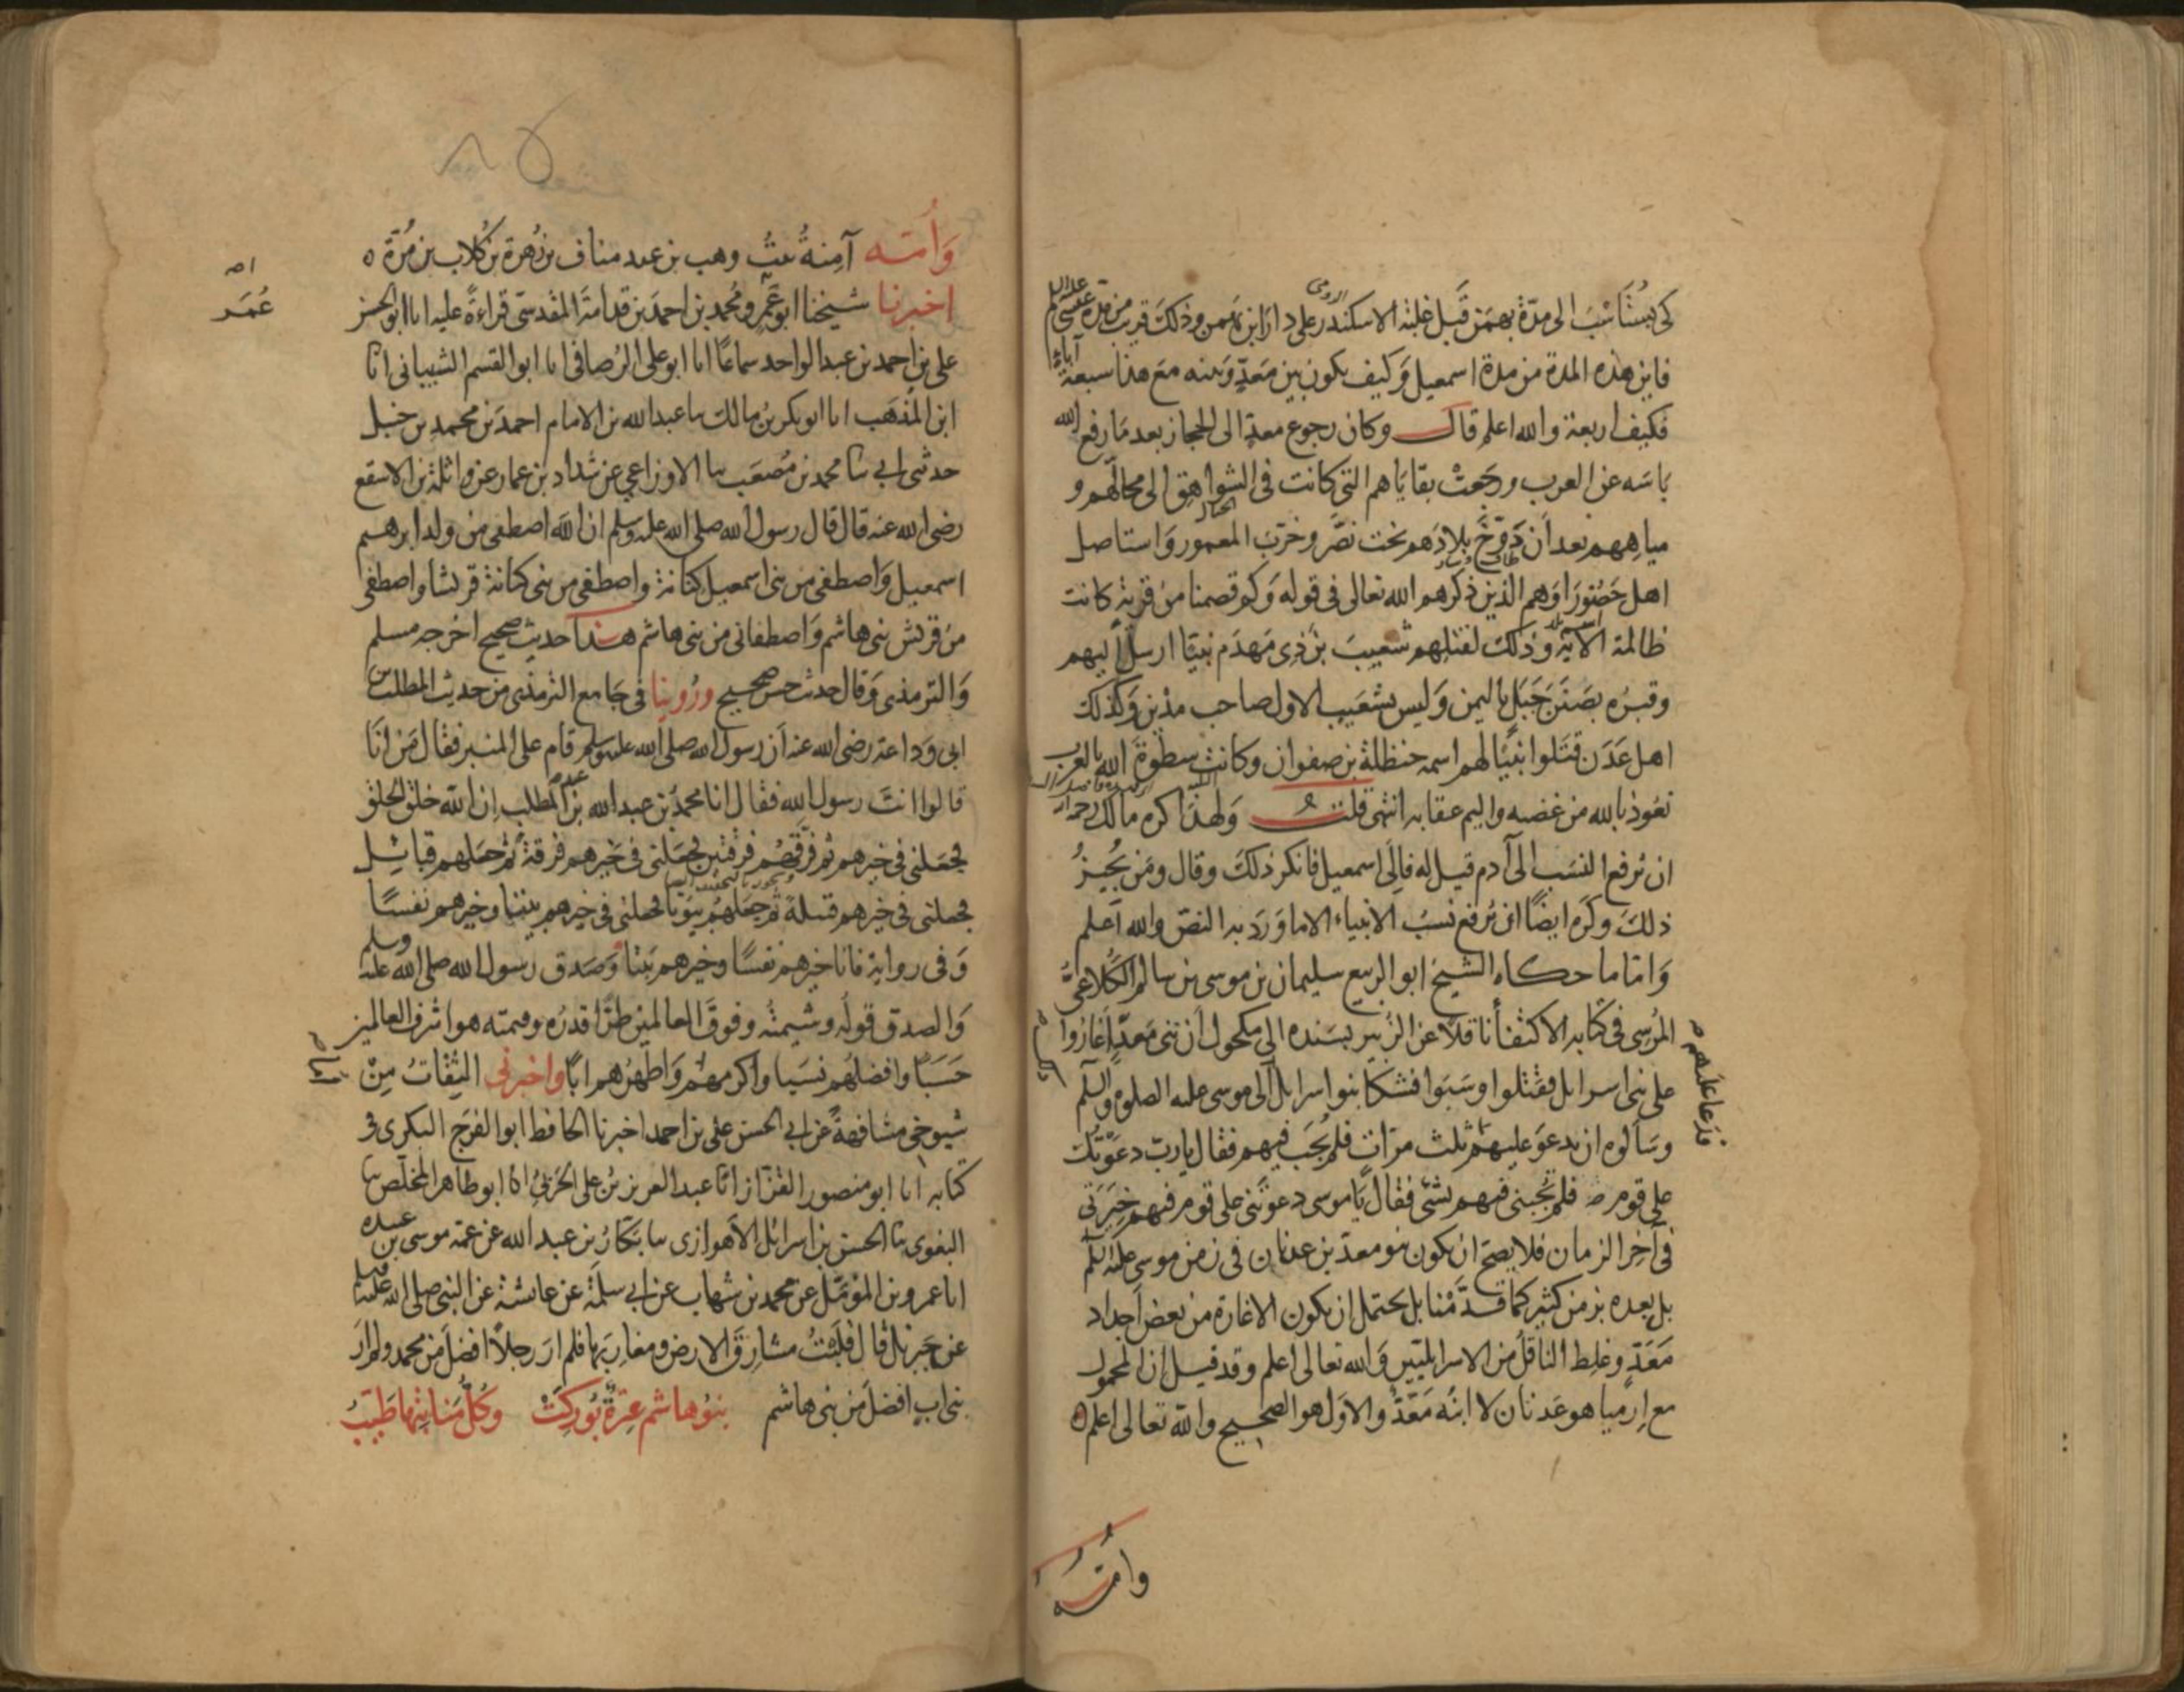 كى بستاسب الى مدة بهمن قبل غلبة الاسكندر الرومى على دارا بن بهمن وذلك قريب من مدة عيسى عليه السلام
فاين هذه المدة من مدة اسمعيل وكيف يكون بين معد وبينه مع هذا سبعة آباء
فكيف اربعة والله اعلم قال وكان رجوع معد الى الحجاز بعد ما رفع الله
باسه عن العرب ورجعت بقاياهم التى كانت فى الشواهق الى محالهم و
مياههم بعد ان دوخ بلادهم بخت نصر وخرب المعمور واستاصل
اهل حضورا وهم الذين ذكرهم الله تعالى فى قوله وكم قصمنا من قرية كانت
ظالمة الآية وذلك لقتلهم شعيب بن ذى مهدم نبيا ارسل اليهم
وقبره بصنن جبل باليمن وليس بشعيب الاول صاحب مدين وكذلك
اهل عدن قتلوا نبيا لهم اسمه حنظلة بن صفوان وكانت سطوة الله بالعرب
نعوذ بالله من غضبه واليم عقابه انتهى قلت ولهذا كره مالك رحمه الله
ان نرفع النسب الى آدم قيل له فالى اسمعيل فانكر ذلك وقال ومن يخبر
ذلك وكره ايضا ان نرفع نسب الانبياء الا ما ورد به النص والله اعلم
واما ما حكاه الشيخ ابو الربيع سليمان بن موسى بن سالم الكلاعى
المرسى فى كتابه الاكتفا ناقلا عن الزبير بسنده الى مكحول ان بنى معد اغاروا
على بنى اسرايل فقتلوا وسبوا فشكا بنوا اسرايل الى موسى عليه الصلوة والسلم
وسالوه ان يدعو عليهم ثلث مرات فلم يجب فيهم فقال يارب دعوتك
على قوم فلم تجبنى فيهم بشى فقال ياموسى دعوتنى على قوم فيهم خيرتى
فى آخر الزمان فلا يصح ان يكون بنو معد بن عدنان فى زمن موسى عليه السلم
بل بعده بزمن كثير كما قدمنا بل يحتمل ان يكون الاغارة من بعض اجداد
معد وغلط الناقل من الاسرايليين والله تعالى اعلم وقد قيل ان المحمول
مع ارميا هو عدنان لا ابنه معد والاول هو الصحيح والله تعالى اعلم
وامّه
وأمّه آمنة بنت وهب بن عبد مناف بن زهرة بن كلاب بن مرة
اخبرنا شيخنا ابو عمر ومحمد بن احمد بن قدامة المقدسى قراءة عليه انا ابو الحسن
عُمَر
على بن احمد بن عبد الواحد سماعا انا ابو على الرصافى انا ابو القسم الشيبانى انا
ابن المذهب انا ابو بكر بن مالك نا عبد الله بن الامام احمد بن محمد بن حنبل
حدثنى ابى نا محمد بن مصعب نا الاوزاعى عن شداد بن عمار عن واثلة بن الاسقع
رضى الله عنه قال قال رسول الله صلى الله عليه وسلم ان الله اصطفى من ولد ابرهيم
اسمعيل واصطفى من بنى اسمعيل كنانة واصطفى من بنى كنانة قريشا واصطفى
من قريش بنى هاشم واصطفانى من بنى هاشم هذا حديث صحيح اخرجه مسلم
والترمذى وقال حديث حسن صحيح وروينا فى جامع الترمذى من حديث المطلب بن
ابى وداعة رضى الله عنه ان رسول الله صلى الله عليه وسلم قام على المنبر فقال من انا
قالوا انت رسول الله فقال انا محمد بن عبد الله بن عبد المطلب ان الله خلق الخلق
فجعلنى فى خيرهم ثم فرقهم فرقتين فجعلنى فى خيرهم فرقة ثم جعلهم قبائل
فجعلنى فى خيرهم قبيلة ثم جعلهم بيوتا فجعلنى فى خيرهم بيتا وخيرهم نفسا
وفى رواية فانا خيرهم نفسا وخيرهم بيتا وصدق رسول الله صلى الله عليه وسلم
والصدق قوله وشيمته وفوق العالمين طرا قدره وقيمته هو اشرف العالمين
حسبا وافضلهم نسبا واكرمهم واطهرهم ابا واخبرنى الثقات من
شيوخى مشافهة عن ابى الحسن على بن احمد اخبرنا الحافظ ابو الفرج البكرى فى
كتابه انا ابو منصور القزاز انا عبد العزيز بن على الحربى انا ابو طاهر المخلص نا
البغوى نا الحسن بن اسرائل الاهوازى نا بكار بن عبد الله عن عمه موسى بن عبيدة
انا عمرو بن المؤمل عن محمد بن شهاب عن ابى سلمة عن عائشة عن النبى صلى الله عليه وسلم
عن جبريل قال قلبت مشارق الارض ومغاربها فلم ار رجلا افضل من محمد ولم ار
بنى اب افضل من بنى هاشم بنو هاشم عترة بوركت وكل مناسبها طيب